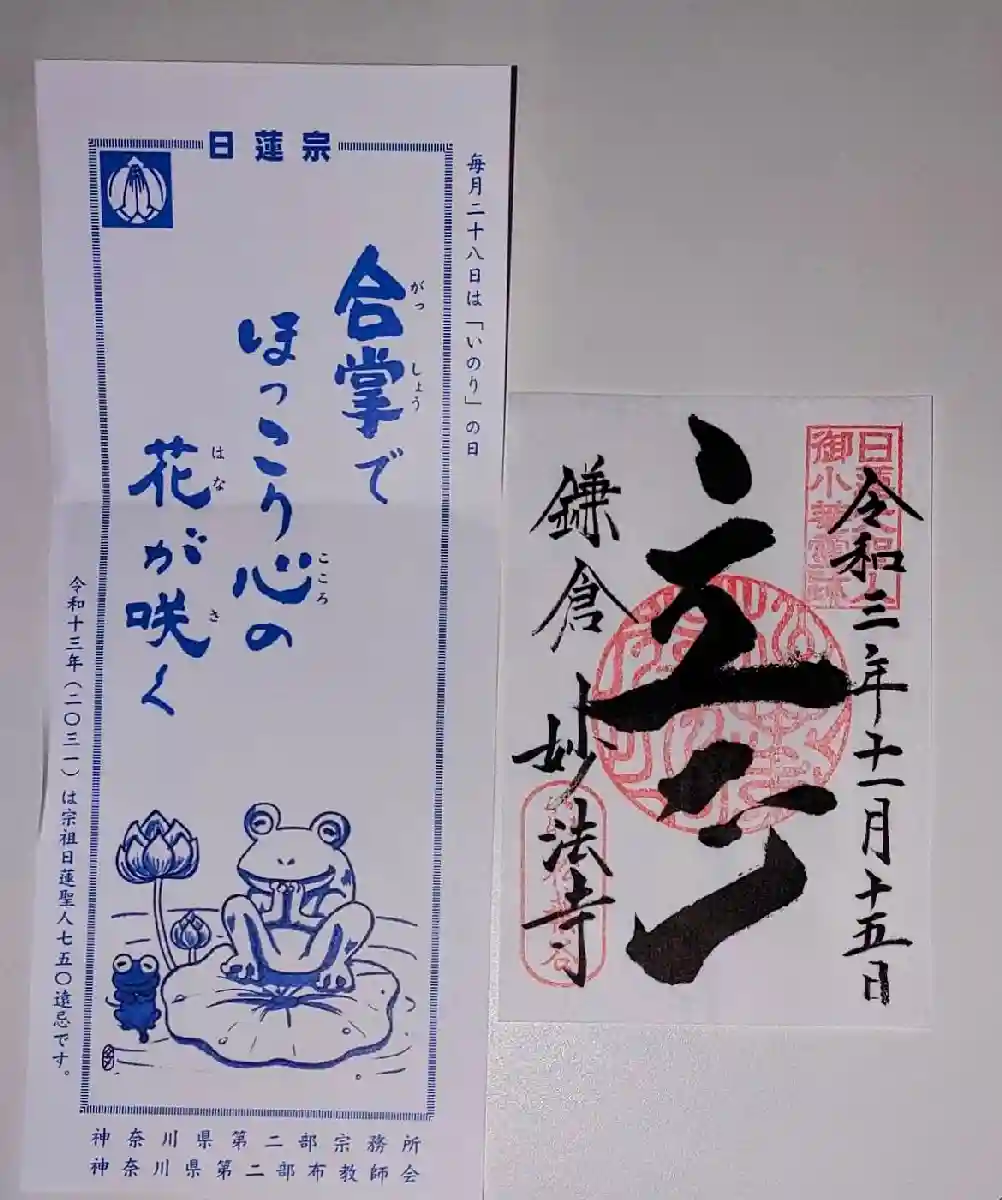 日蓮宗
毎月二十八日は「いのり」の日
合掌で
がっしょう
ほっこり心の
こころ
花が咲く
はな
さ
令和十三年(二〇三一)は宗祖日蓮聖人七五〇遠忌です。
神奈川県第二部宗務所
神奈川県第二部布教師会
日蓮大聖人
御小菴霊跡
令和三年十一月十五日
鎌倉 妙法寺